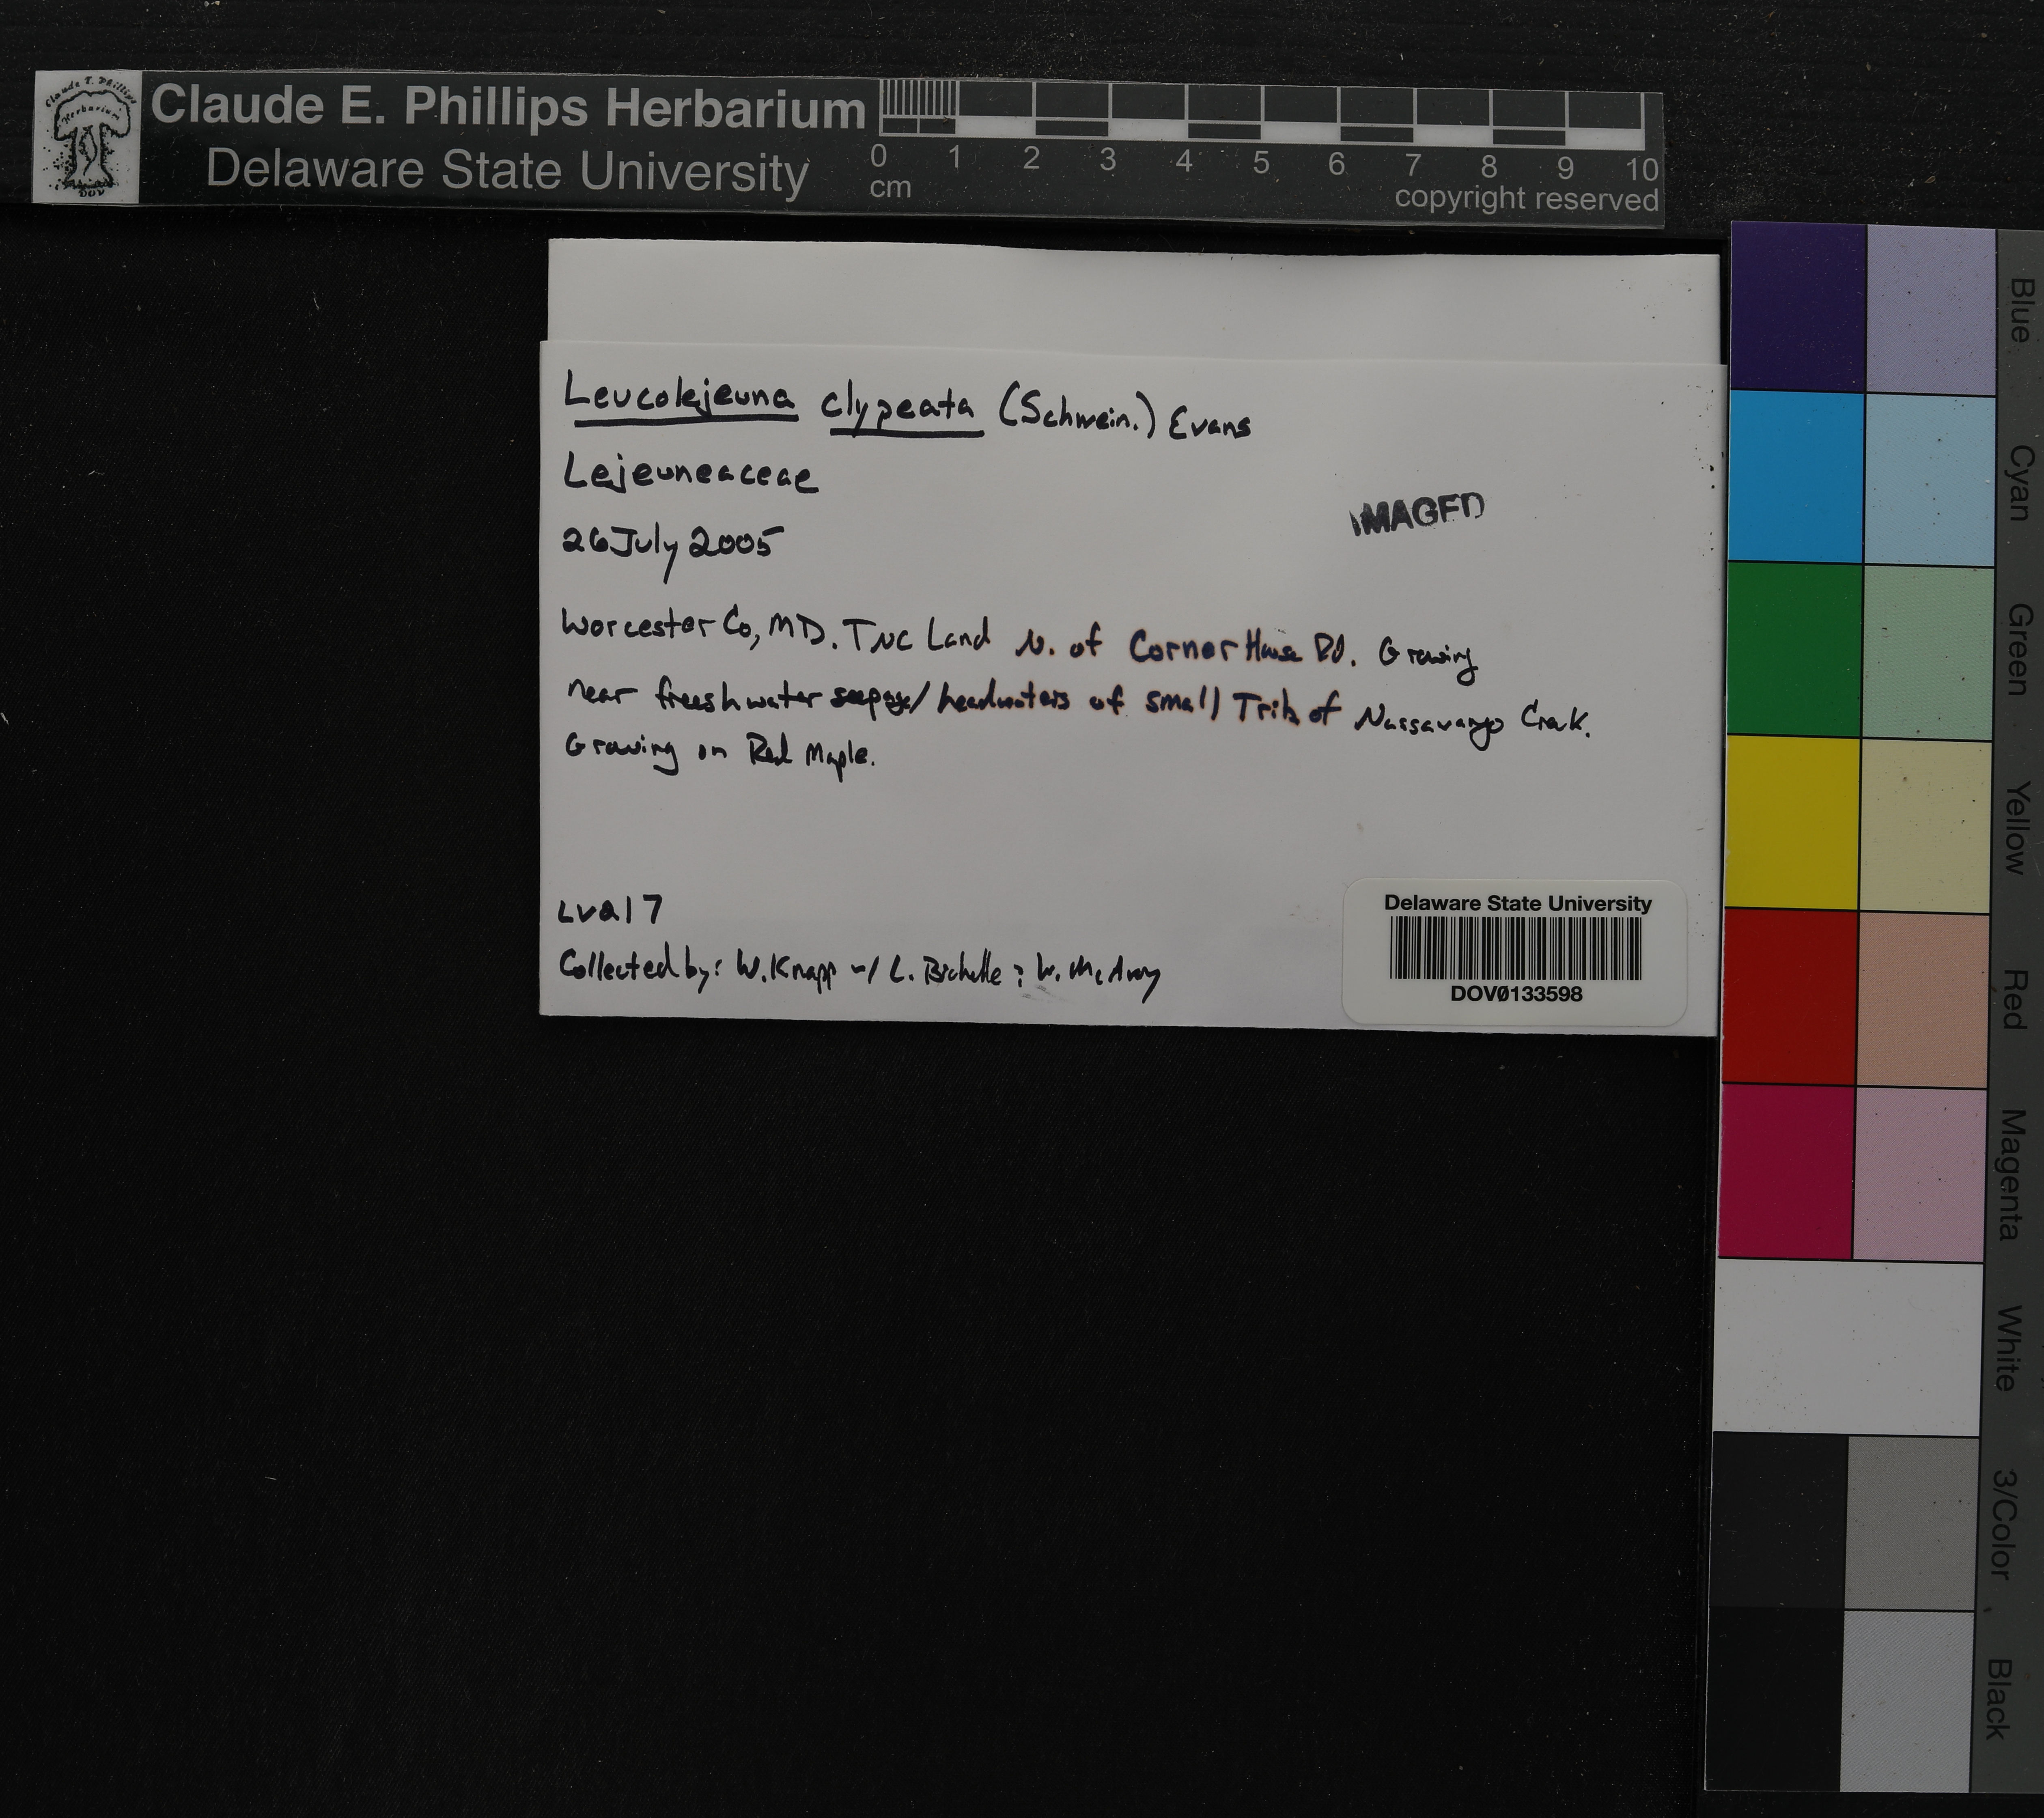 Claude E. Phillips Herbarium
Delaware State University
0 1 2 3 4 5 6 7 8 9 10
cm
copyright reserved
Claude E. Phillips
Herbarium
DOV
Leucolejeuna clypeata (Schwein.) Evans
Lejeuneaceae
26 July 2005
IMAGED
Worcester Co, MD. TNC Land N. of Corner House Rd. Growing
near freeshwater seepage/headwaters of small Trib of Nassavango Creek.
Growing on Red Maple.
Lva17
Collected by: W. Knapp w/ L. W. McAvoy
Delaware State University
DOV0133598
Blue
Cyan
Green
Yellow
Red
Magenta
White
3/Color
Black